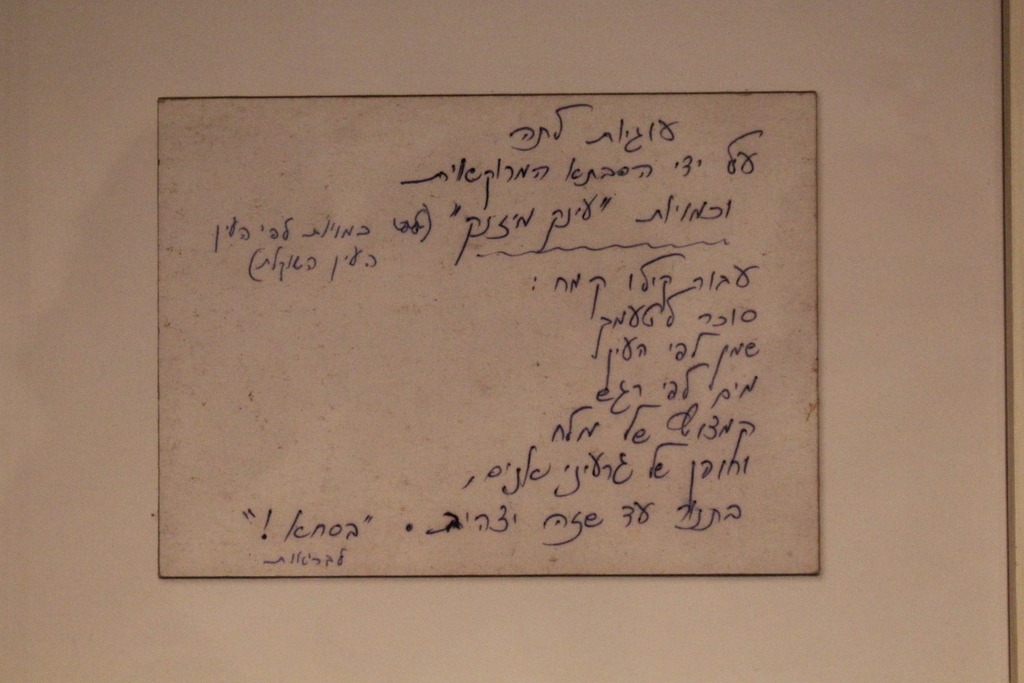 עוגיות לתה
על ידי הסבתא המרוקאית
וכמויות "עינק מיזנק" (כמויות לפי העין
העין השוקלת)
עבור קילו קמח :
סוכר לטעמך
שמן לפי העין
מים לפי רגש
קמצוץ של מלח
וחופן של גרעיני אניס,
בתנור עד שזה יצהיב. "בסחא!"
לבריאות